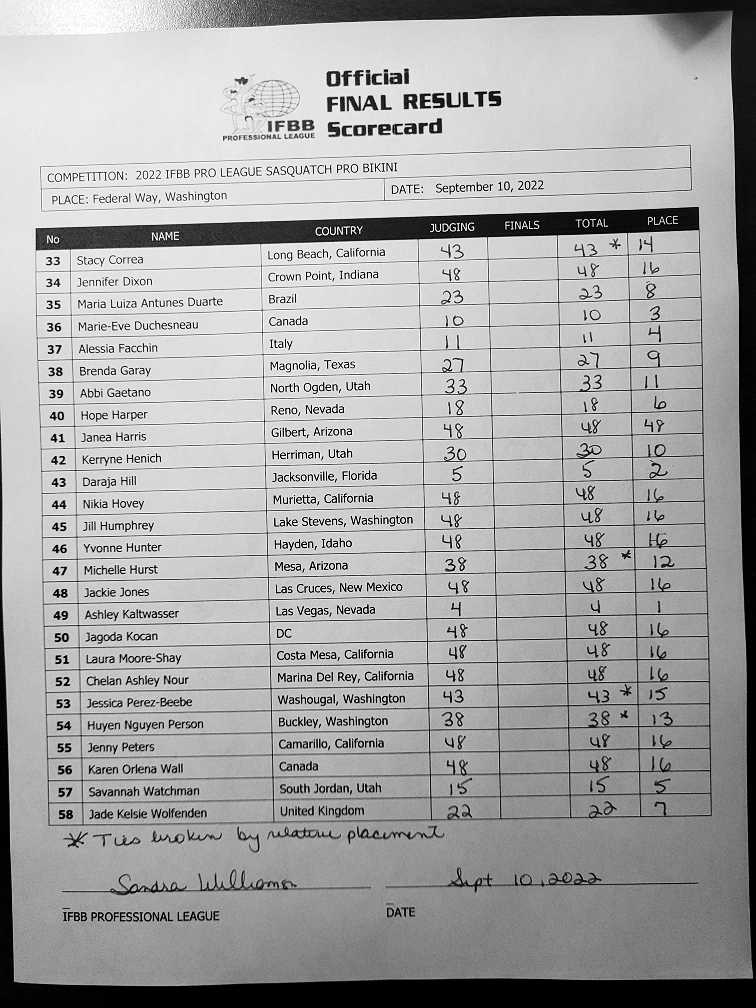 Official
FINAL RESULTS
IFBB Scorecard
PROFESSIONAL LEAGUE
COMPETITION: 2022 IFBB PRO LEAGUE SASQUATCH PRO BIKINI
PLACE: Federal Way, Washington DATE: September 10, 2022
No NAME COUNTRY JUDGING FINALS TOTAL PLACE
33 Stacy Correa Long Beach, California 43 43 * 14
34 Jennifer Dixon Crown Point, Indiana 48 48 16
35 Maria Luiza Antunes Duarte Brazil 23 23 8
36 Marie-Eve Duchesneau Canada 10 10 3
37 Alessia Facchin Italy 11 11 4
38 Brenda Garay Magnolia, Texas 27 27 9
39 Abbi Gaetano North Ogden, Utah 33 33 11
40 Hope Harper Reno, Nevada 18 18 6
41 Janea Harris Gilbert, Arizona 48 48 48
42 Kerryne Henich Herriman, Utah 30 30 10
43 Daraja Hill Jacksonville, Florida 5 5 2
44 Nikia Hovey Murietta, California 48 48 16
45 Jill Humphrey Lake Stevens, Washington 48 48 16
46 Yvonne Hunter Hayden, Idaho 48 48 16
47 Michelle Hurst Mesa, Arizona 38 38 * 12
48 Jackie Jones Las Cruces, New Mexico 48 48 16
49 Ashley Kaltwasser Las Vegas, Nevada 4 4 1
50 Jagoda Kocan DC 48 48 16
51 Laura Moore-Shay Costa Mesa, California 48 48 16
52 Chelan Ashley Nour Marina Del Rey, California 48 48 16
53 Jessica Perez-Beebe Washougal, Washington 43 43 * 15
54 Huyen Nguyen Person Buckley, Washington 38 38 * 13
55 Jenny Peters Camarillo, California 48 48 16
56 Karen Orlena Wall Canada 48 48 16
57 Savannah Watchman South Jordan, Utah 15 15 5
58 Jade Kelsie Wolfenden United Kingdom 22 22 7
* Ties broken by relative placement
Sandra Williamson Sept 10, 2022
IFBB PROFESSIONAL LEAGUE DATE